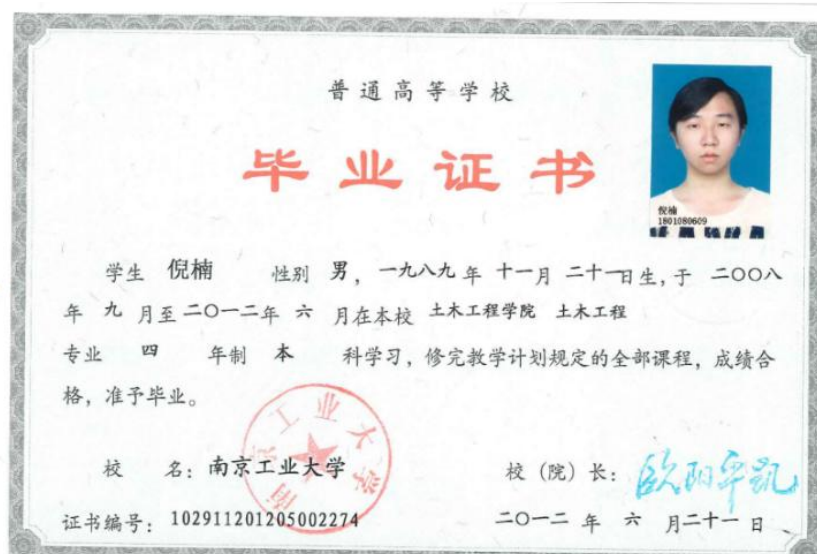 普通高等学校
毕业证书
倪楠
1801080609
学生 倪楠 性别 男，一九八九年 十一月 二十一日生，于 二〇〇八
年 九 月至二〇一二年 六 月在本校 土木工程学院 土木工程
专业 四 年制 本 科学习，修完教学计划规定的全部课程，成绩合
格，准予毕业。
南京工业大学
校 名：南京工业大学 校（院）长：欧阳平凯
证书编号：102911201205002274 二〇一二 年 六 月二十一日